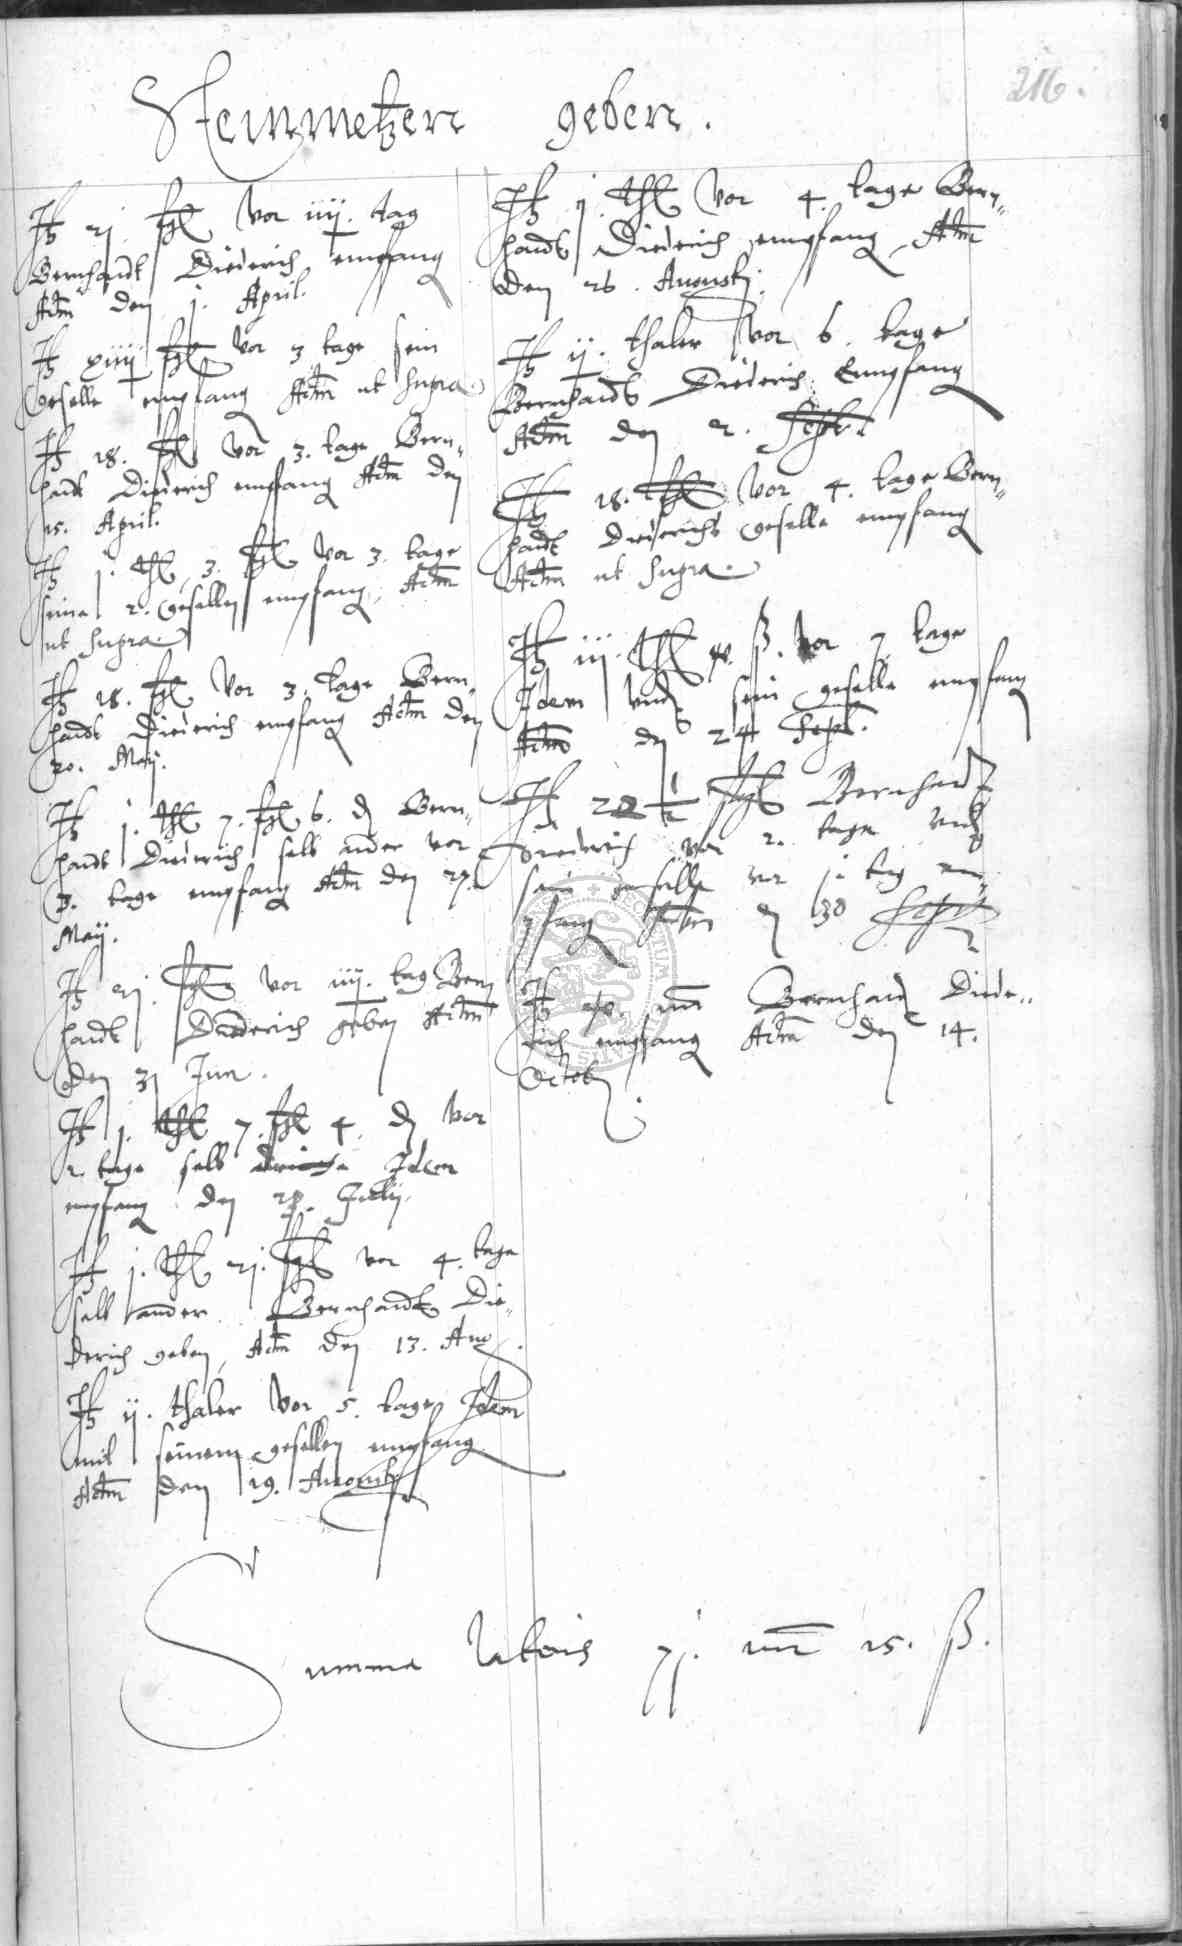 216.
Steinmetzen geben.
It 21. ßl vor iiij. tag
Bernhardt Diederich empfang
Actm den j. April.
It xiiij ßl vor 3 tage sein
Geselle empfang Actm ut supra
It 18. ßl vor 3. tage Bern„
hardt Diederich empfang Actm den
15. April.
It j. thl 3. ßl vor 3. tage
seine 2. gesellen empfang, Actm
ut supra
It 18. ßl vor 3. tage Bern„
hardt Diederich empfang Actm den
20. Maij.
It j. thl 7. ßl 6. d Bern„
hardt Diederich selb ander vor
3. tage empfang Actm den 27.
Maij.
It 21. ßl vor iiij. tag Bern
hardt Diederich geben Actm
den 31 Jun.
It j. thl 7. ßl 4. d vor
2. tage selb Idem
empfang den 28. Julij.
It j. thl 21. ßl vor 4. tage
selb ander Bernhardt Die„
derich geben, Actm den 13. Aug.
It ij. thaler vor 5. tage Idem
mit seinem gesellen empfang
Actm den 19. Augusti
It j. thl vor 4. tage Bern„
hardt Diederich empfang Actm
den 26. Augusti.
It ij. thaler vor 6. tage
Bernhardt Diederich Empfang
Actm den 2. Sept.
It 18. ßl vor 4. tage Bern„
hardt Diederichs geselle empfang
Actm ut supra.
It iij. thl ß. vor 7 tage
Idem und sein geselle empfang
Actm den 24 Sept.
It 22 1/2 ßl Bernhardt
Diederich vor 2. tage und
sein geselle vor j. tag em„
pfang Actm d 30 Sept
It mr Bernhard Diede„
rich empfang Actm den 14.
Octob.
Summa lateris mr 15. ß.